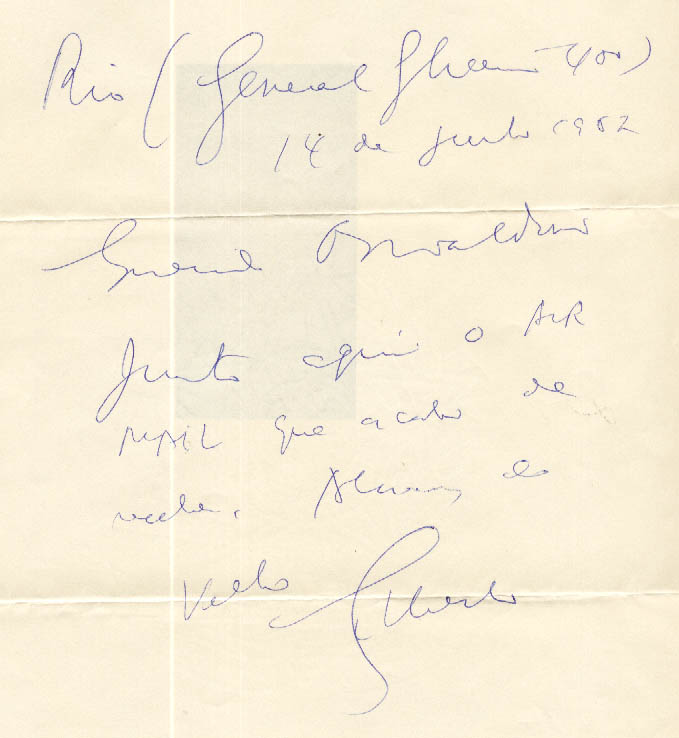 Rio (General Glicerio 400)
14 de junho 1982
Querido
Junto aqui o AIR
MAIL que acabo de
receber. Abraços do
Velho Gilberto